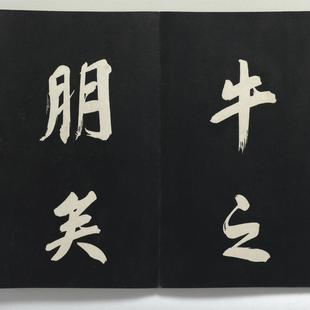 牛之
朋矣